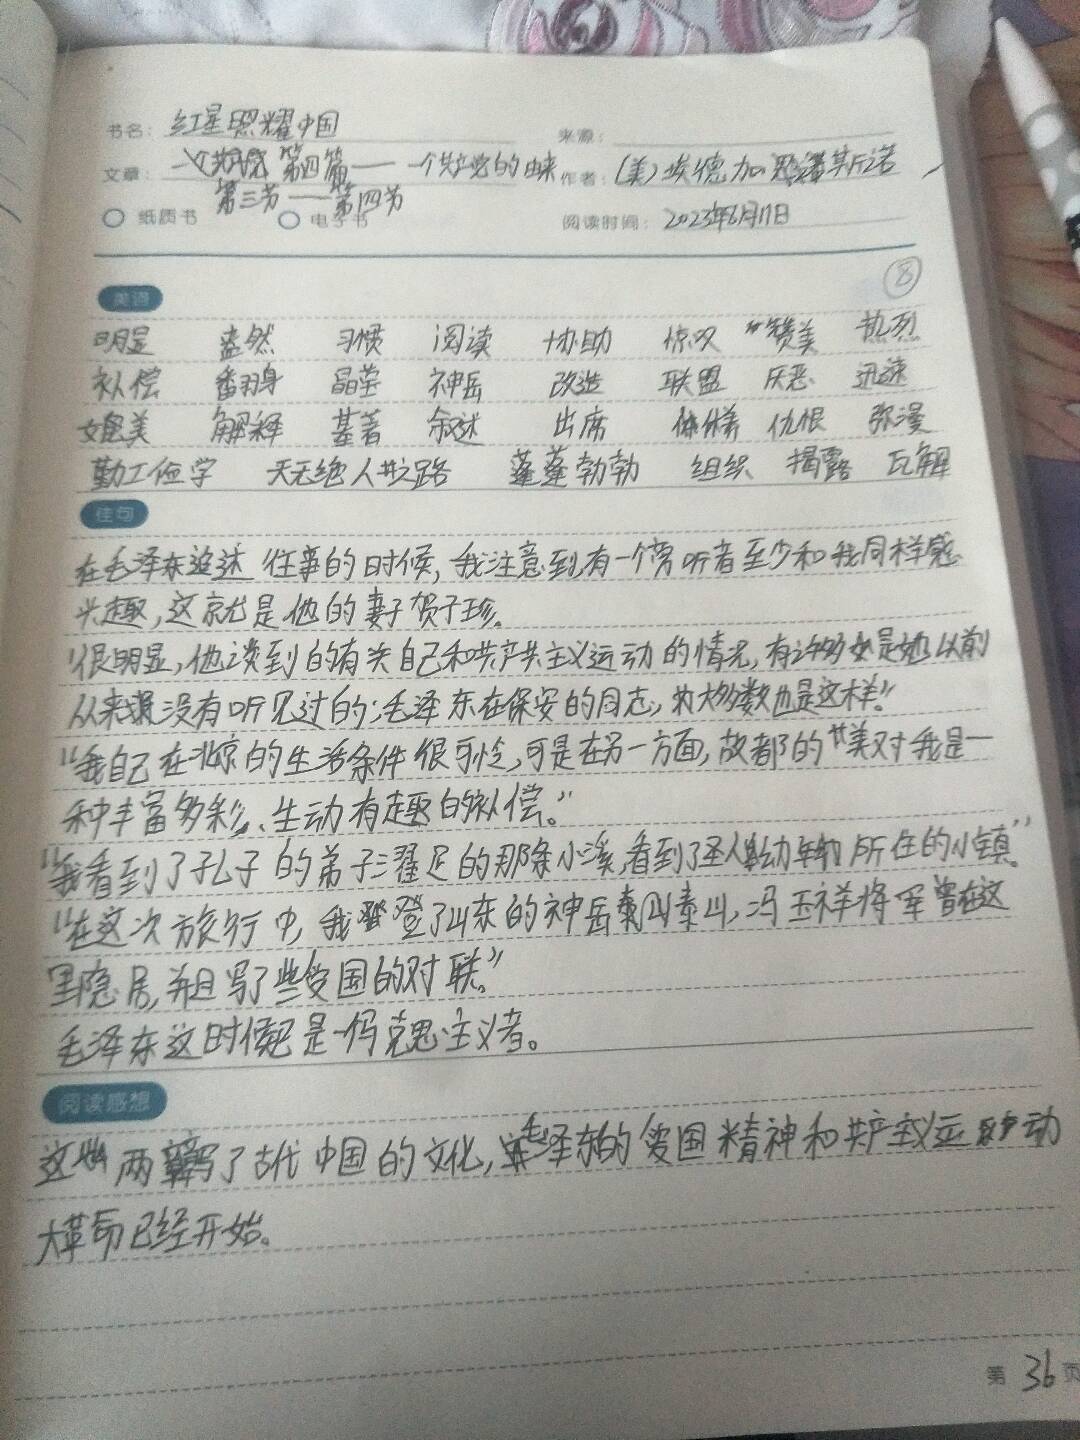 书名: 红星照耀中国 来源:
文章: 第四篇——一个共产党的由来 作者: (美)埃德加 斯诺
第三节——第四节
纸质书 电子书 阅读时间: 2023年6月17日
⑧
美词
明显 盎然 习惯 阅读 协助 惊叹 赞美 热烈
补偿 翻身 晶莹 神岳 改造 联盟 厌恶 迅速
媲美 解释 基著 叙述 出席 体样 仇恨 弥漫
勤工俭学 天无绝人之路 蓬蓬勃勃 组织 揭露 瓦解
佳句
在毛泽东追述往事的时候，我注意到，有一个旁听者至少和我同样感
兴趣，这就是他的妻子贺子珍。
“很明显，他谈到的有关自己和共产主义运动的情况，有许多是她以前
从来没有听见过的；毛泽东在保安的同志，大多数也是这样”
“我自己在北京的生活条件很可怜，可是在另一方面，故都的美对我是一
种丰富多彩、生动有趣的补偿。”
“我看到了孔子的弟子濯足的那条小溪，看到了圣人幼年 所住的小镇。”
“在这次旅行中，我登了山东的神岳泰山，冯玉祥将军曾在这
里隐居，并且写了些爱国的对联。”
毛泽东这时候已是一个马克思主义者。
阅读感想
这 两 写了古代中国的文化，毛泽东的爱国精神和共产主义运动
大革命已经开始。
第 36 页